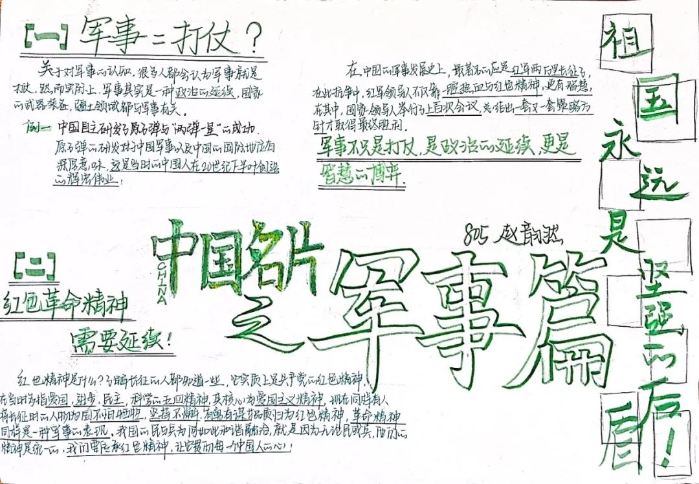 【一】军事=打仗？
关于对军事的认知,很多人都会认为军事就是
打仗,然而实际上,军事其实是一种政治的延续,国家
的武器装备,疆土领域都与军事有关。
例一 中国自主研发了原子弹与"两弹一星"的成功.
原子弹的研发对于中国军事以及中国的国际地位有
深厚意味,这是当时的中国人在20世纪下半叶创造
的辉煌伟业!
在中国的军事发展史上,最著名的应是红军两万里长征了,
在此抗争中,红军领导人不仅靠一腔热血与红色精神,更有智慧,
在其中,国家领导人举行了上百次会议,
才取得最终胜利.
军事不只是打仗,是政治的延续,更是
智慧的博弈.
祖国永远是坚强的后盾!
805 赵韵然
中国名片
CHINA
之军事篇
【二】
红色革命精神
需要延续!
红色精神是什么?了解长征的人都知道一些,它实质上是共产党的红色精神,
在当时为指爱国,进步,民主,科学的五四精神,其核心为爱国主义精神,拥有同时有人
将长征时的人们的国不怕牺牲,坚持不懈,品质归为红色精神,革命精神
同时是一种军事的表现,我国的军与兵为何如此和谐融洽,就是因为无论民或兵,他们的
精神是统一的.我们要传承红色精神,让它驻扎每一个中国人的心!